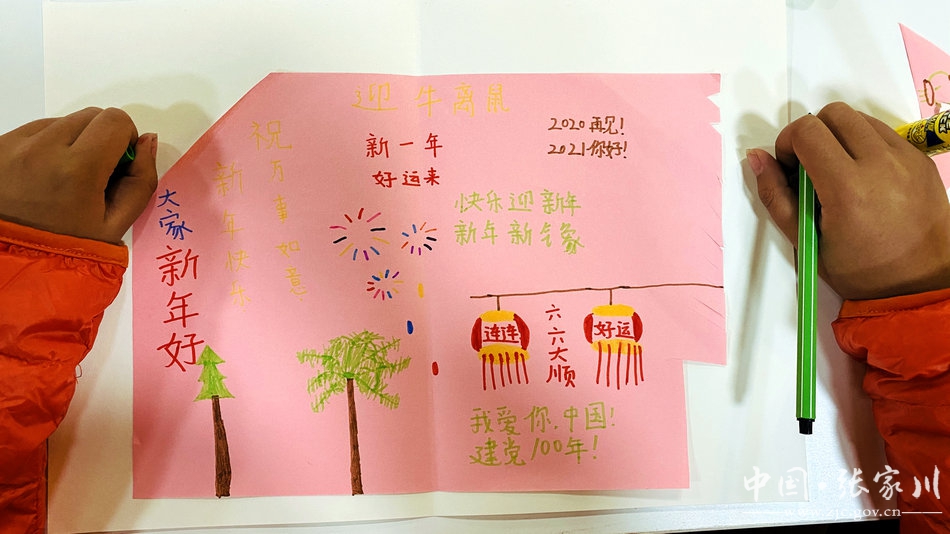 迎牛离鼠
祝万事如意
新年快乐
大家新年好
新一年
好运来
2020再见!
2021你好!
快乐迎新年
新年新气象
连连
六六大顺
好运
我爱你,中国!
建党100年!
中国·张家川
www.zjc.gov.cn